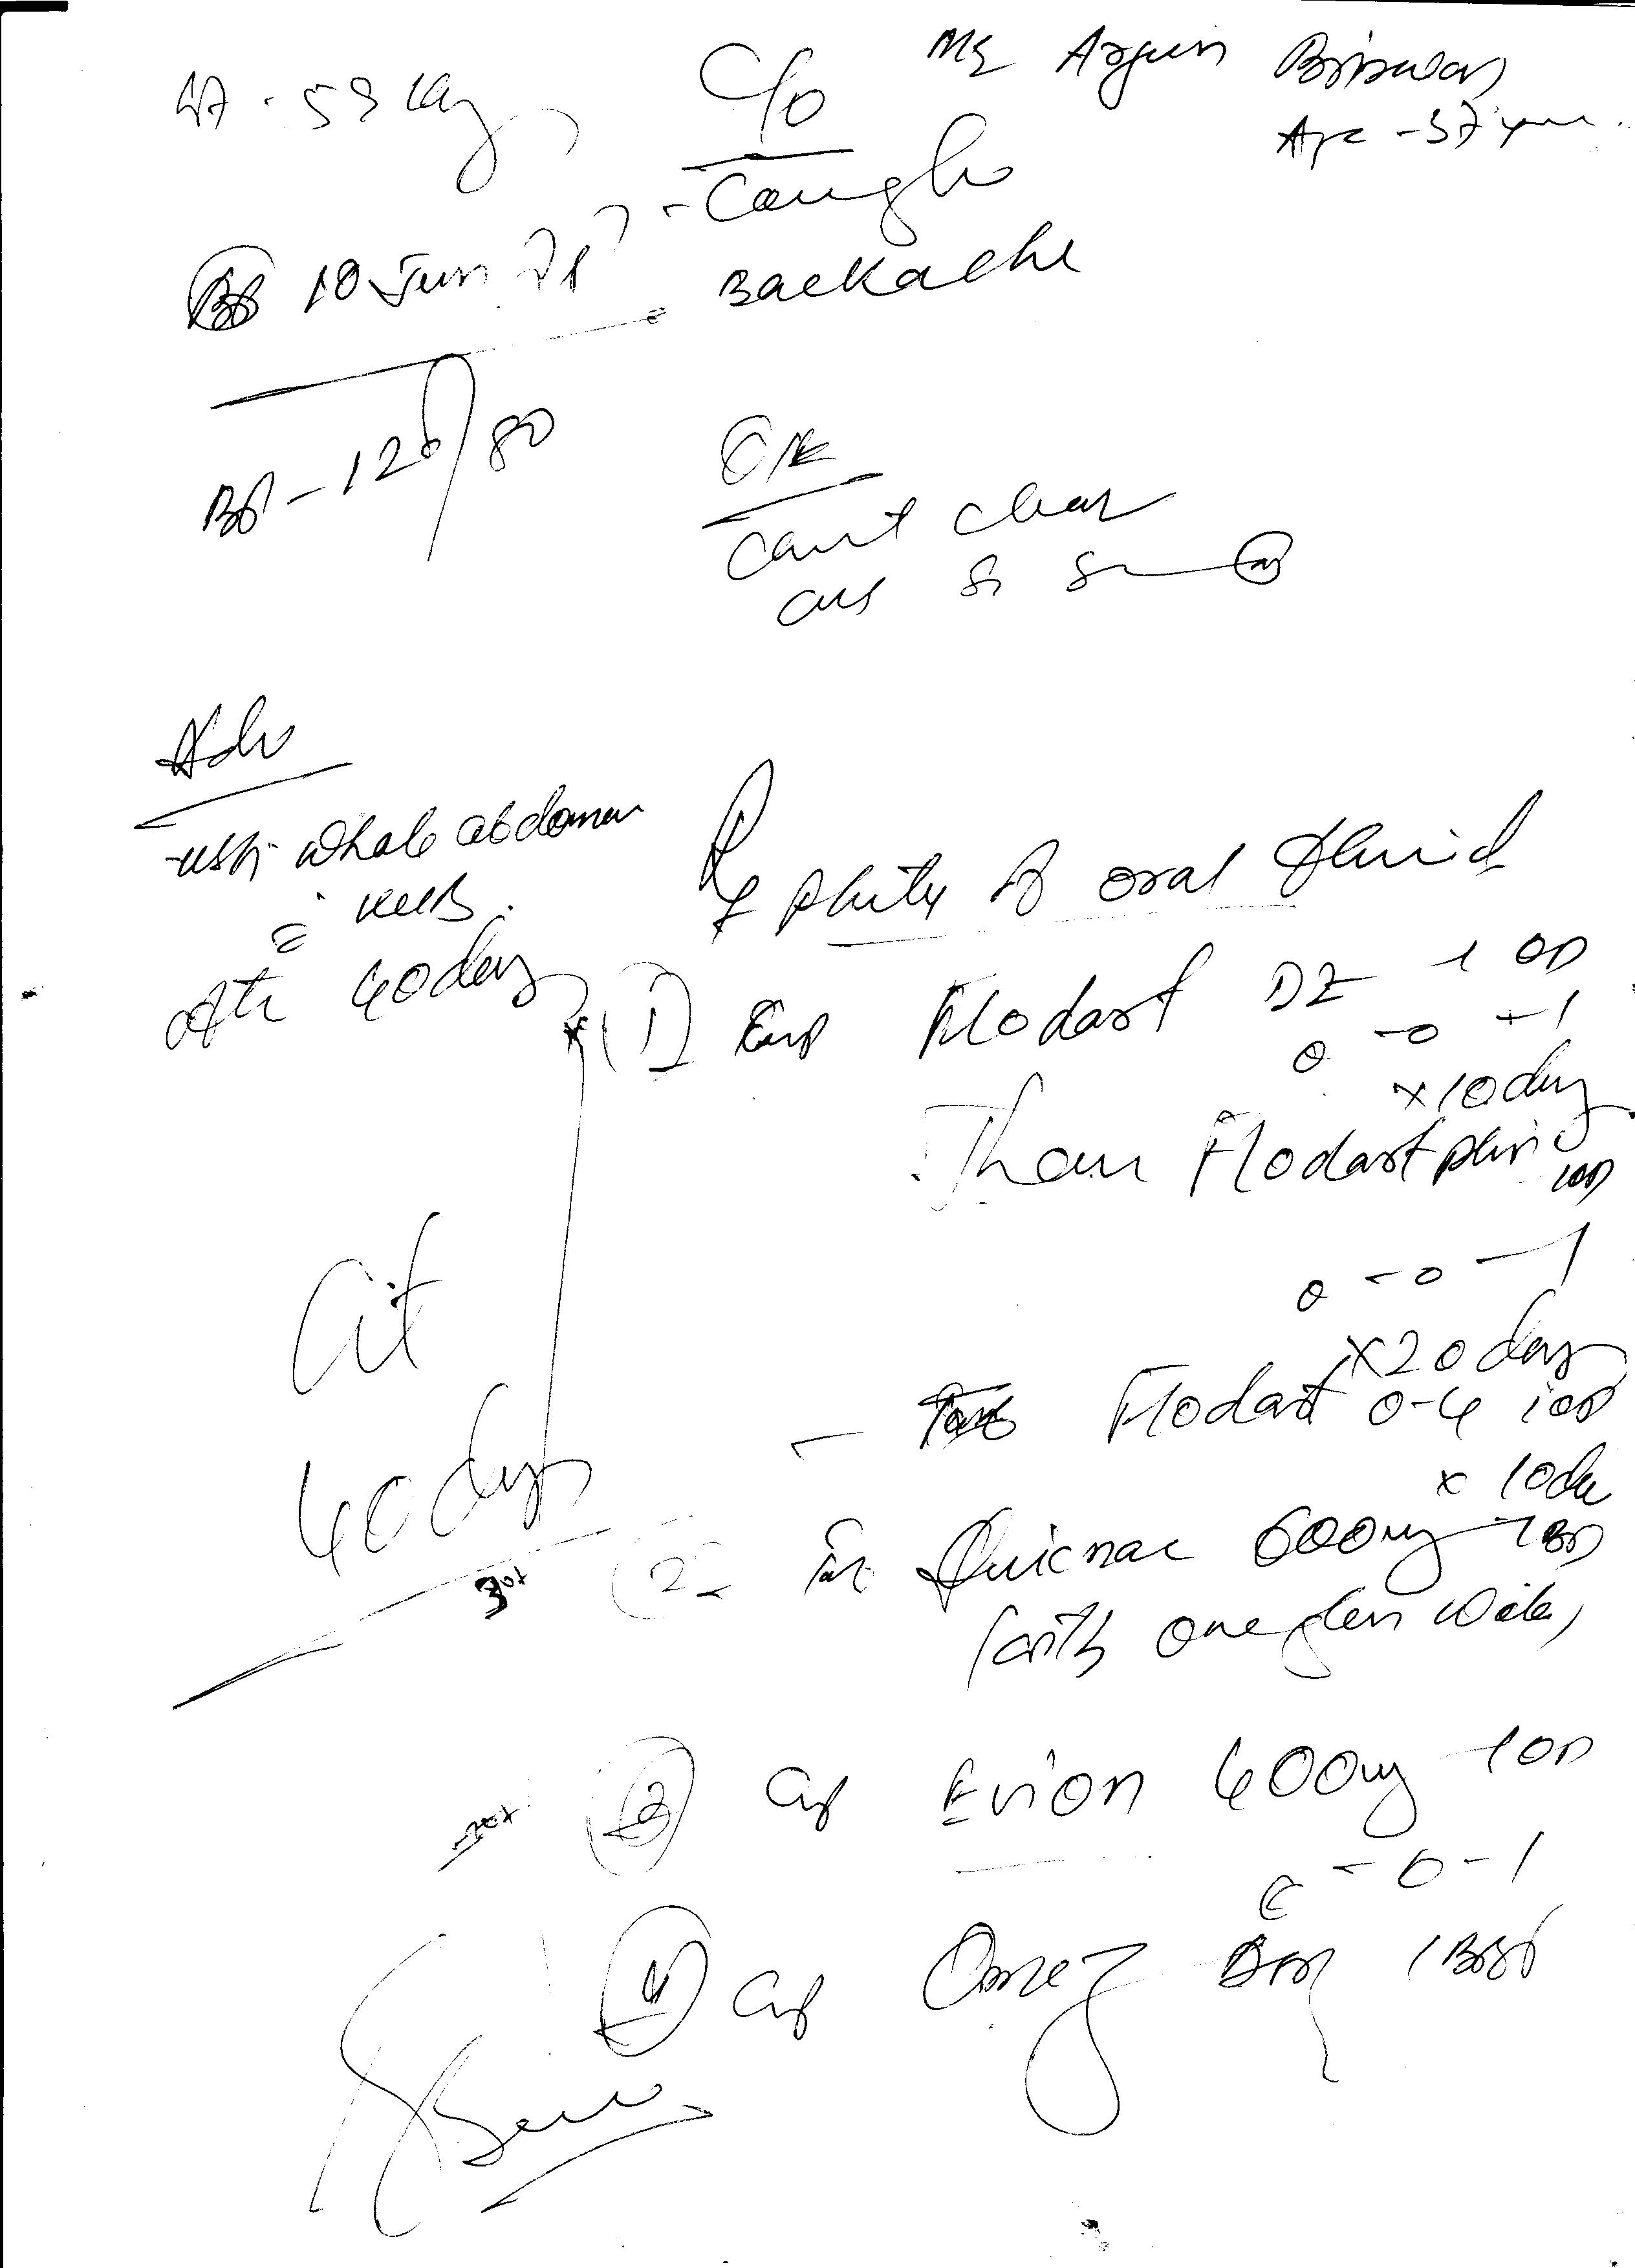 Mr Arjun Biswas
Age - 37 year
Wt - 53 kg
C/o
- Cough
- Backache
10 Jun 21
BP - 120/80
O/E
Chest clear
CVS S1 S2
Adv
- USG whole abdomen
c KUB
After 40 days
Rx
plenty of oral fluid
(1) Cap Flodart DZ 1 OD
0 - 0 - 1
x 10 days
Then Flodart plus 1 OD
0 - 0 - 1
x 20 days
- Flodart 0.4 1 OD
x 10 days
(2) Quicnac 600mg 1 BD
(with one glass water)
(3) Cap Evion 400mg 1 OD
0 - 0 - 1
(4) Cap Omez DSR 1 BBF
40 days